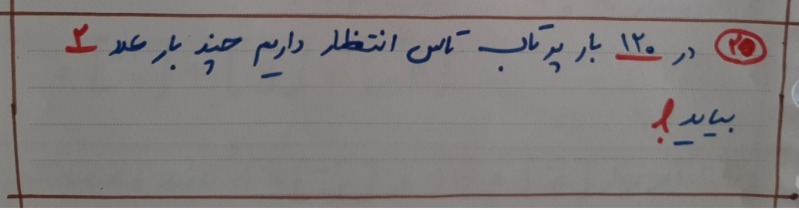 در ۱۲۰ بار پرتاب تاس انتظار داریم چند بار عدد ۲
بیاید؟